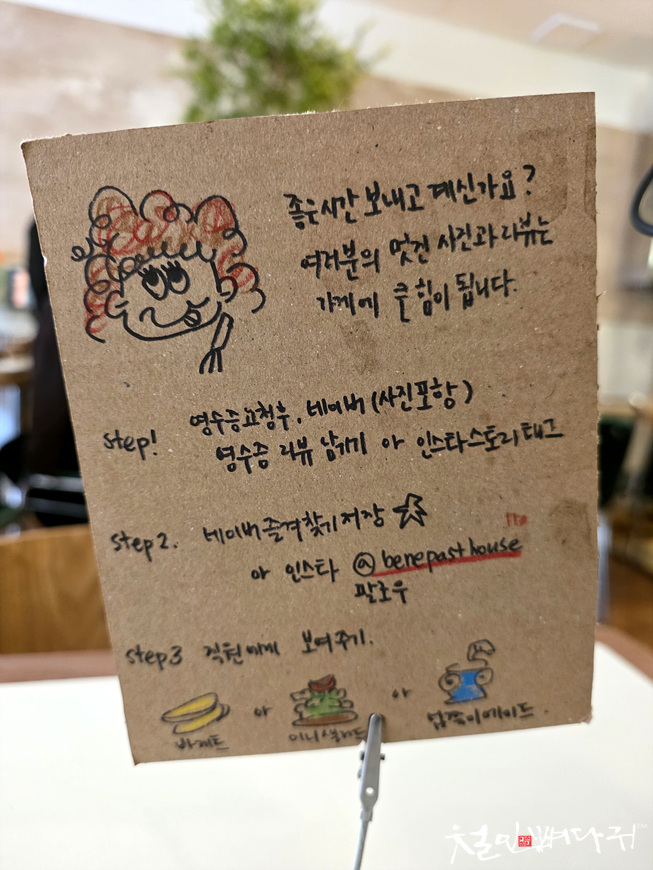 좋은시간 보내고 계신가요?
여러분의 멋진 사진과 리뷰는
가게에 큰 힘이 됩니다.
step1
영수증요청후. 네이버(사진포함)
영수증 리뷰 남기기 or 인스타스토리태그
step2. 네이버즐겨찾기저장
or 인스타 @benepasthouse
팔로우
step3 직원에게 보여주기.
바게트 or 미니샐러드 or 납짝이에이드.